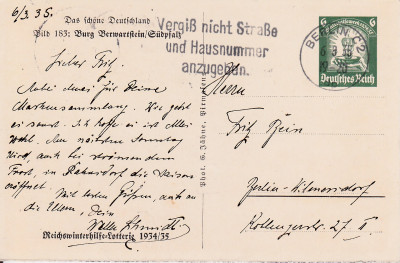 6/3. 35.
Das schöne Deutschland
Bild 183: Burg Berwartstein/Südpfalz
Vergiß nicht Straße
und Hausnummer
anzugeben.
6 6
Deutsches Reich
BERLIN
Lieber Fritz,
Anbei etwas für Deine
Markensammlung. Wie geht
es sonst. Ich hoffe es ist Alles
Wohl. Am nächsten Sonntag
wird, auch bei
Frost, in Rahnsdorf die Saison
eröffnet. Mit besten Grüßen, auch an
die Eltern, Dein
Walter Schmidt.
Reichswinterhilfe-Lotterie 1934/35
Phot. G. Jähne, Pirmasens
Herrn
Fritz
Berlin-Wilmersdorf
27 II